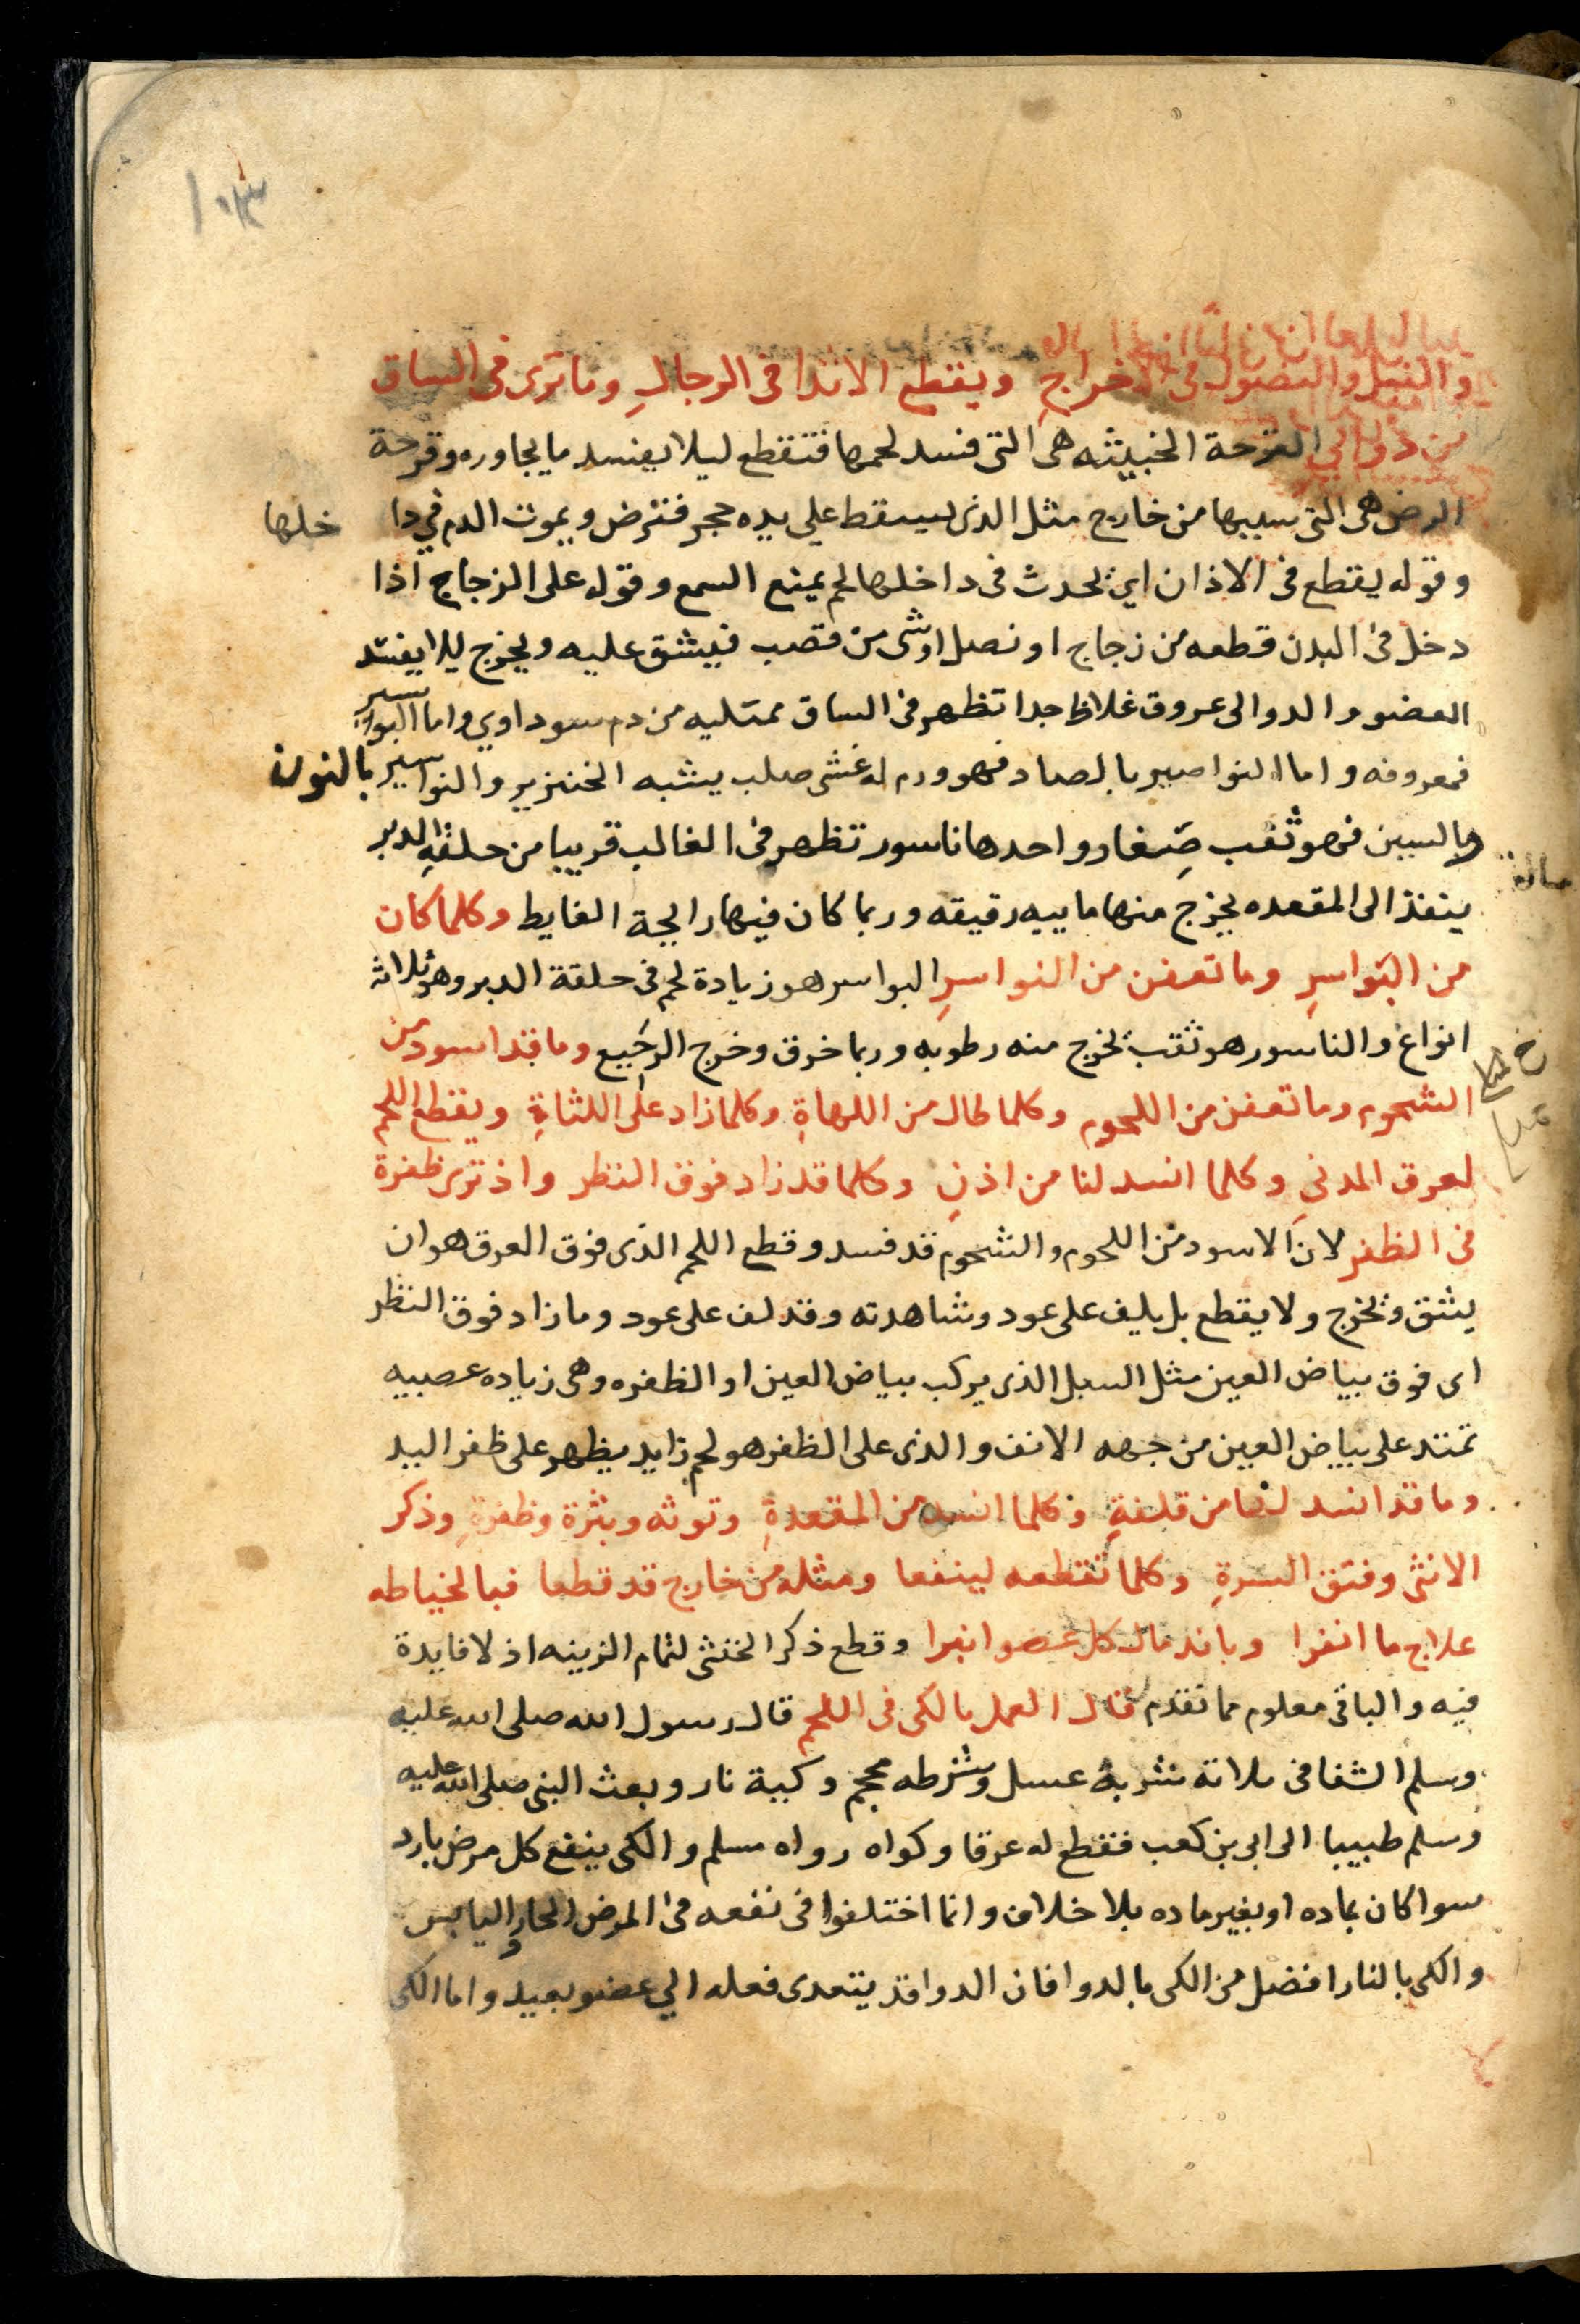 ١٠٣
والنبل والنصول فى الاخراجِ ويقطع الاثدا فى الرجالِ وما ترى فى الساق
من دوالي القرحة الخبيثه هى التى فسد لحمها فتقطع ليلا يفسد ما يجاوره وقرحة
الرض هى التى سببها من خارج مثل الذى يسقط على يده حجر فترض ويموت الدم في دا خلها
وقوله يقطع فى الاذان اي يحدث فى داخلها لحم يمنع السمع وقوله على الزجاج اذا
دخل فى البدن قطعه من زجاج او نصل اوشى من قصب فيشق عليه ويخرج ليلا يفسد
العضو والدوالى عروق غلاظ جدا تظهر فى الساق ممتليه من دم سوداوي واما البواسير
فمعروفه واما النواصير بالصاد فهو ورم له غشى صلب يشبه الخنزير والنواسير بالنون
وبالسين فهو ثقب صِغار واحدها ناسور تظهر فى الغالب قريبا من حلقة الدبر
ينفذ الى المقعده يخرج منها ماييه رقيقه وربما كان فيها رايحة الغايط وكلما كان
من البَواسرِ وما تعفن من النواسرِ البواسر هو زيادة لحم فى حلقة الدبر وهو ثلاثه
انواع والناسور هو ثقب يخرج منه رطوبه وربما خرق وخرج الرجيع وما قد اسود من
الشحوم وما تعفن من اللحوم وكلما طال من اللهاةِ وكلما زاد على اللثاةِ ويقطع اللحم
لعرق المدنيِ وكلما انسد لنا من اذنِ وكلما قد زاد فوق النظر واذ ترى ظفرة
فى الظفر لان الاسود من اللحوم والشحوم قد فسد وقطع اللحم الذى فوق العرق هو ان
يشق ويخرج ولا يقطع بل يلف على عود وشاهدته وقد لف على عود وما زاد فوق النظر
اى فوق بياض العين مثل السبل الذى يركب بياض العين او الظفره وهى زياده عصبيه
تمتد على بياض العين من جهه الانف والذى على الظفر هو لحم زايد يظهر على ظفر اليد
وما قد انسد لنا من قلفةٍ وكلما انسد من المقعدةِ وتوثه وبثرة وظفرةِ وذكر
الانثى وفتق السرةِ وكلما تقطعه لينفعا ومثله من خارج قد قطعا فبالخياطه
علاج ما انفرا وباندمال كل عضو انبرا وقطع ذكر الخنثى لتمام الزينه اذ لا فايدة
فيه والباقى معلوم مما تقدم قال العمل بالكى فى اللحم قال رسول الله صلى الله عليه
وسلم الشفا فى ثلاثة شربة عسل وشرطه محجم وكية نار وبعث النبى صلى الله عليه
وسلم طبيبا الى ابى بن كعب فقطع له عرقا وكواه رواه مسلم والكى ينفع كل مرض بارد
سوا كان بماده او بغير ماده بلا خلاف وانما اختلفوا فى نفعه فى المرض الحار واليابس
والكى بالنار افضل من الكى بالدوا فان الدوا قد يتعدى فعله الي عضو بعيد واما الكى